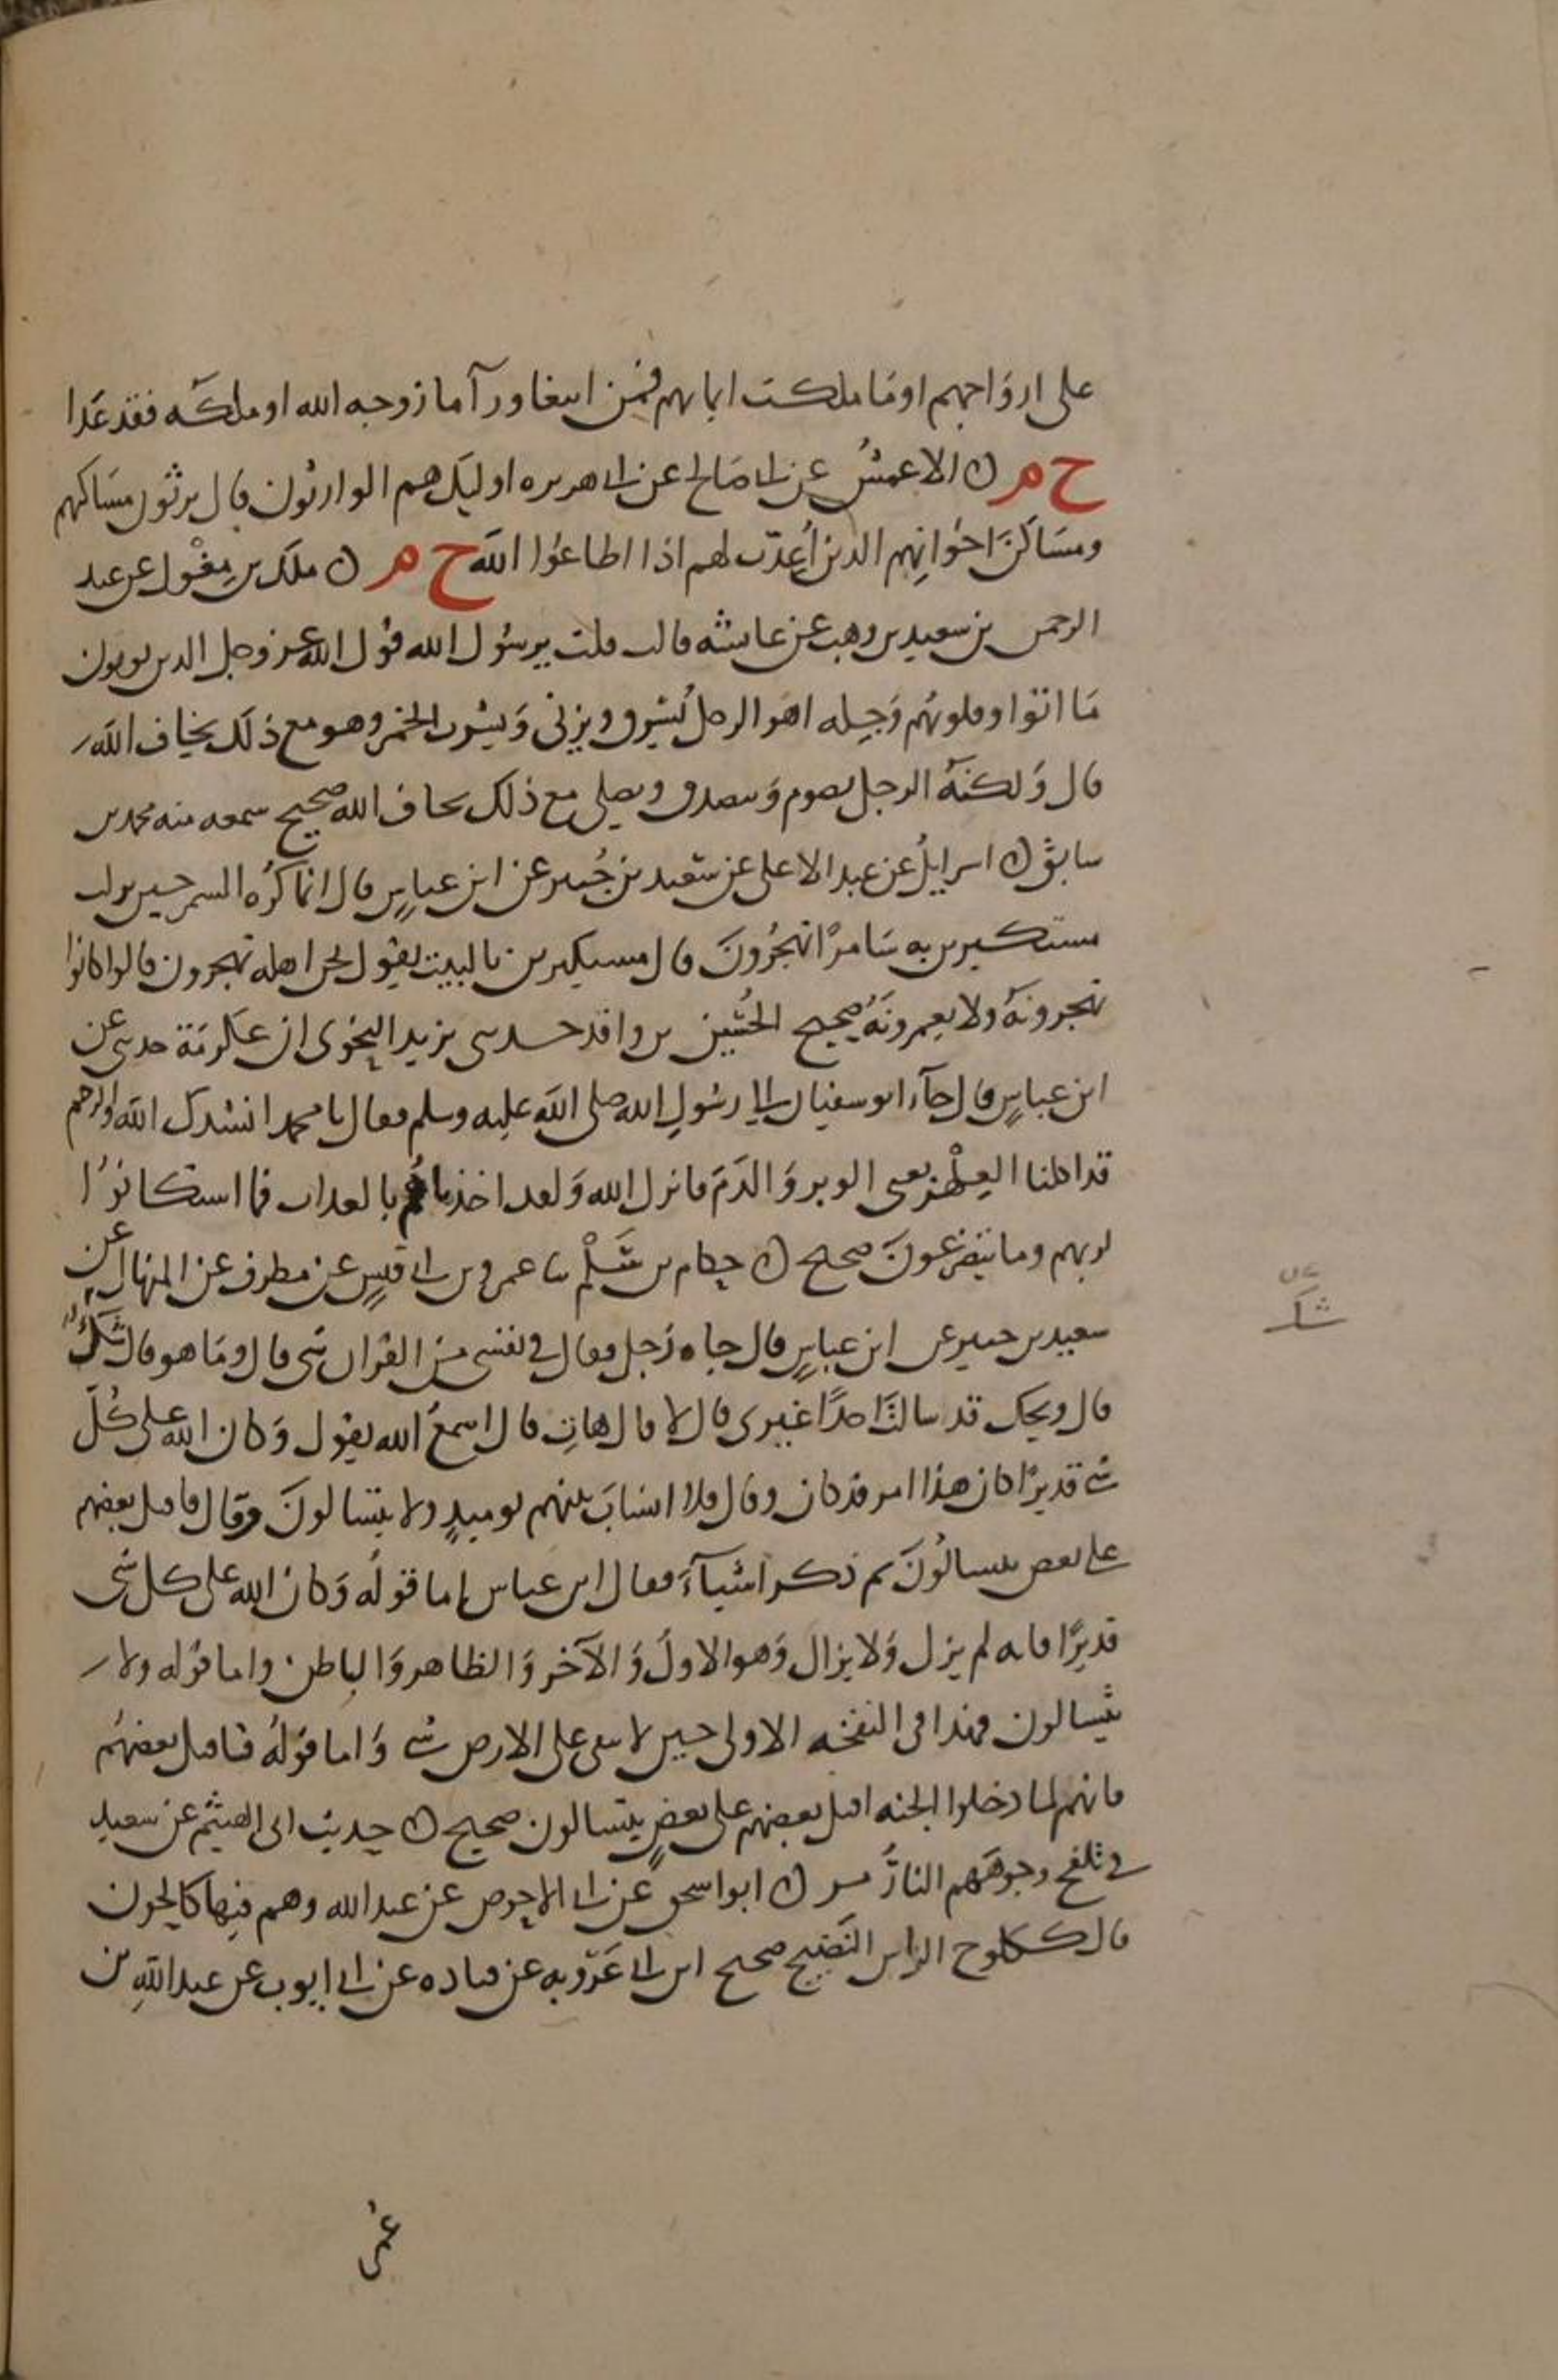 على ازواجهم او ما ملكت ايمانهم فمن ابتغا ورآ ما زوجه الله او ملكه فقد عدا
خ م ن الاعمش عن ابي صالح عن ابي هريره اوليك هم الوارثون قال يرثون مساكنهم
ومساكن اخوانهم الذين اُعدت لهم اذا اطاعوا الله خ م ن ملك بن مغول عن عبد
الرحمن بن سعيد بن وهب عن عايشه قالت قلت يرسول الله قول الله عز وجل الذين يوتون
ما اتوا وقلوبهم وجله اهو الرجل يسرق ويزنى ويشرب الخمر وهو مع ذلك يخاف الله
قال ولكنه الرجل يصوم ويتصدق ويصلى مع ذلك يخاف الله صحيح سمعه منه محمد بن
سابق ن اسرايل عن عبد الاعلى عن سعيد بن جُبير عن ابن عباس قال انما كُره السمر حين نزلت
مستكبرين به سامرًا تهجرون قال مستكبرين بالبيت يقول نحن اهله تهجرون قالوا كانوا
تهجرونه ولا يعمرونه صحيح الحُسين بن واقد حدثنى يزيد النحوى ان عكرمة حدثه عن
ابن عباس قال جآء ابو سفيان الى رسول الله صلى الله عليه وسلم فقال يا محمد انشدك الله والرحم
قد اكلنا العِلْهز يعنى الوبر والدم فانزل الله ولقد اخذناهم بالعداب فما استكانوا
لربهم وما يتضرعون صحيح ن حكام بن سَلْم ثنا عمرو بن ابي قيس عن مطرف عن المنهال عن
سعيد بن جبير عن ابن عباس قال جاه رجل فقال في نفسى من القران شى قال وما هو قال شك
قال ويحك قد سالت احدًا غيرى قال لا قال هات قال اسمع الله يقول وكان الله على كل
شي قديرًا كان هذا امر قد كان وقال فلا انساب بينهم يوميدٍ ولا يتسالون وقال فاقبل بعضهم
على بعض يتسالون ثم ذكر اشيآء فقال ابن عباس اما قوله وكان الله على كل شى
قديرًا فانه لم يزل ولا يزال وهو الاول والآخر والظاهر والباطن واما قوله ولا
يتسالون فهذا فى النفخه الاولى حين لا يبقى على الارض شي واما قوله فاقبل بعضهم
فانهم لما دخلوا الجنه اقبل بعضهم على بعضٍ يتسالون صحيح ن حديث ابى الهيثم عن سعيد
في تلفح وجوههم النار مر ن ابو اسحق عن ابي الاحوص عن عبد الله وهم فيها كالحون
قال ككلوح الراس النضيج صحيح ابن ابي عَرُوبه عن قتاده عن ابي ايوب عن عبد الله بن
شك